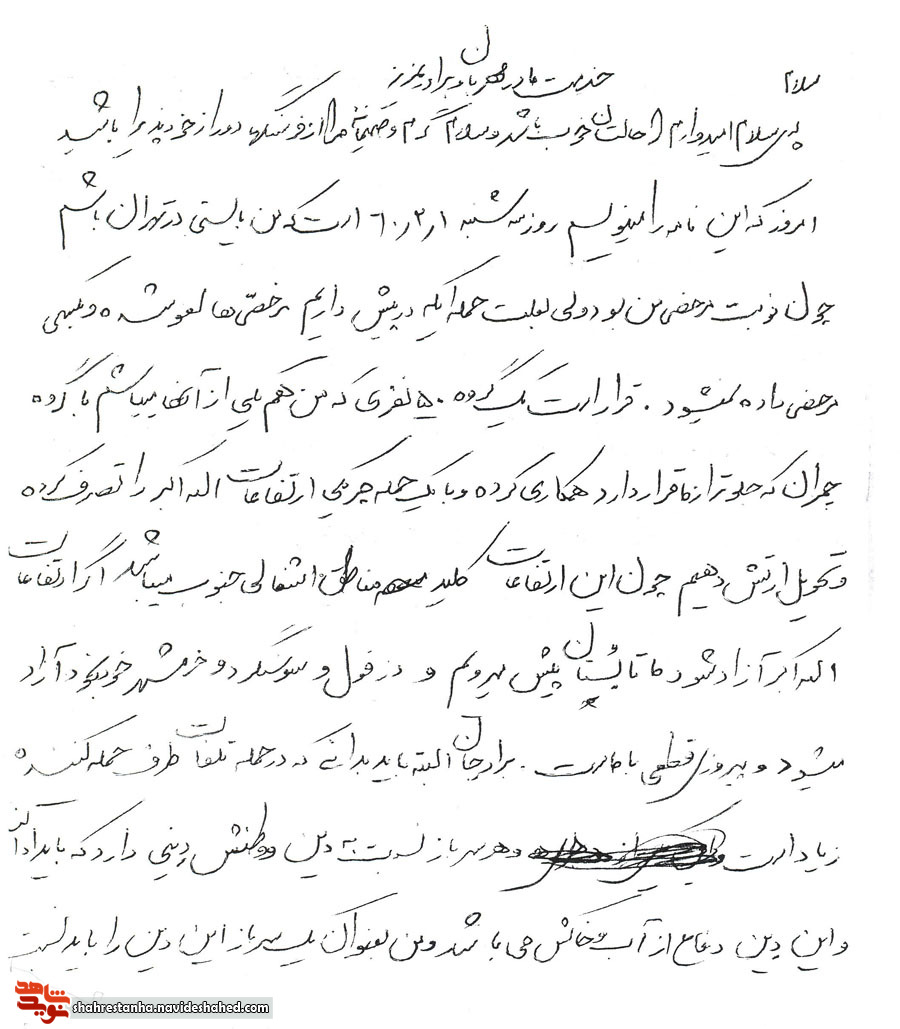 سلام
خدمت مادر مهربان و برادر عزیز
پس سلام امیدوارم حالتان خوب باشد و سلام گرم و صمیمانه مرا از فرسنگها دور از خود پذیرا باشید
امروز که این نامه را مینویسم روز سه شنبه ۶۰٫۲٫۱ است که من بایستی در تهران باشم
چون نوبت مرخصی من بود ولی بعلت حمله ایکه در پیش داریم مرخصی‌ها لغو شده و بکسی
مرخصی داده نمیشود. قرار است یک گروه ۵۰ نفری که من هم یکی از آنها میباشم با گروه
چمران که جلوتر از ما قرار دارد همکاری کرده و با یک حمله چریکی ارتفاعات الله اکبر را تصرف کرده
و تحویل ارتش دهیم چون این ارتفاعات کلید مناطق اشغالی جنوب میباشد اگر ارتفاعات
الله اکبر آزاد شود ما تا بستان پیش میرویم و دزفول و سوسنگرد و خرمشهر خودبخود آزاد
میشود و پیروزی قطعی با ماست. برادر جان البته باید بدانی که در حمله تلفات طرف حمله کننده
زیاد است و هر سرباز نسبت به دین و وطنش دینی دارد که باید ادا کند
و این دین دفاع از آب و خاکش می باشد و من بعنوان یک سرباز این دین را باید نسبت
نوید شاهد
shahrestanha.navideshahed.com